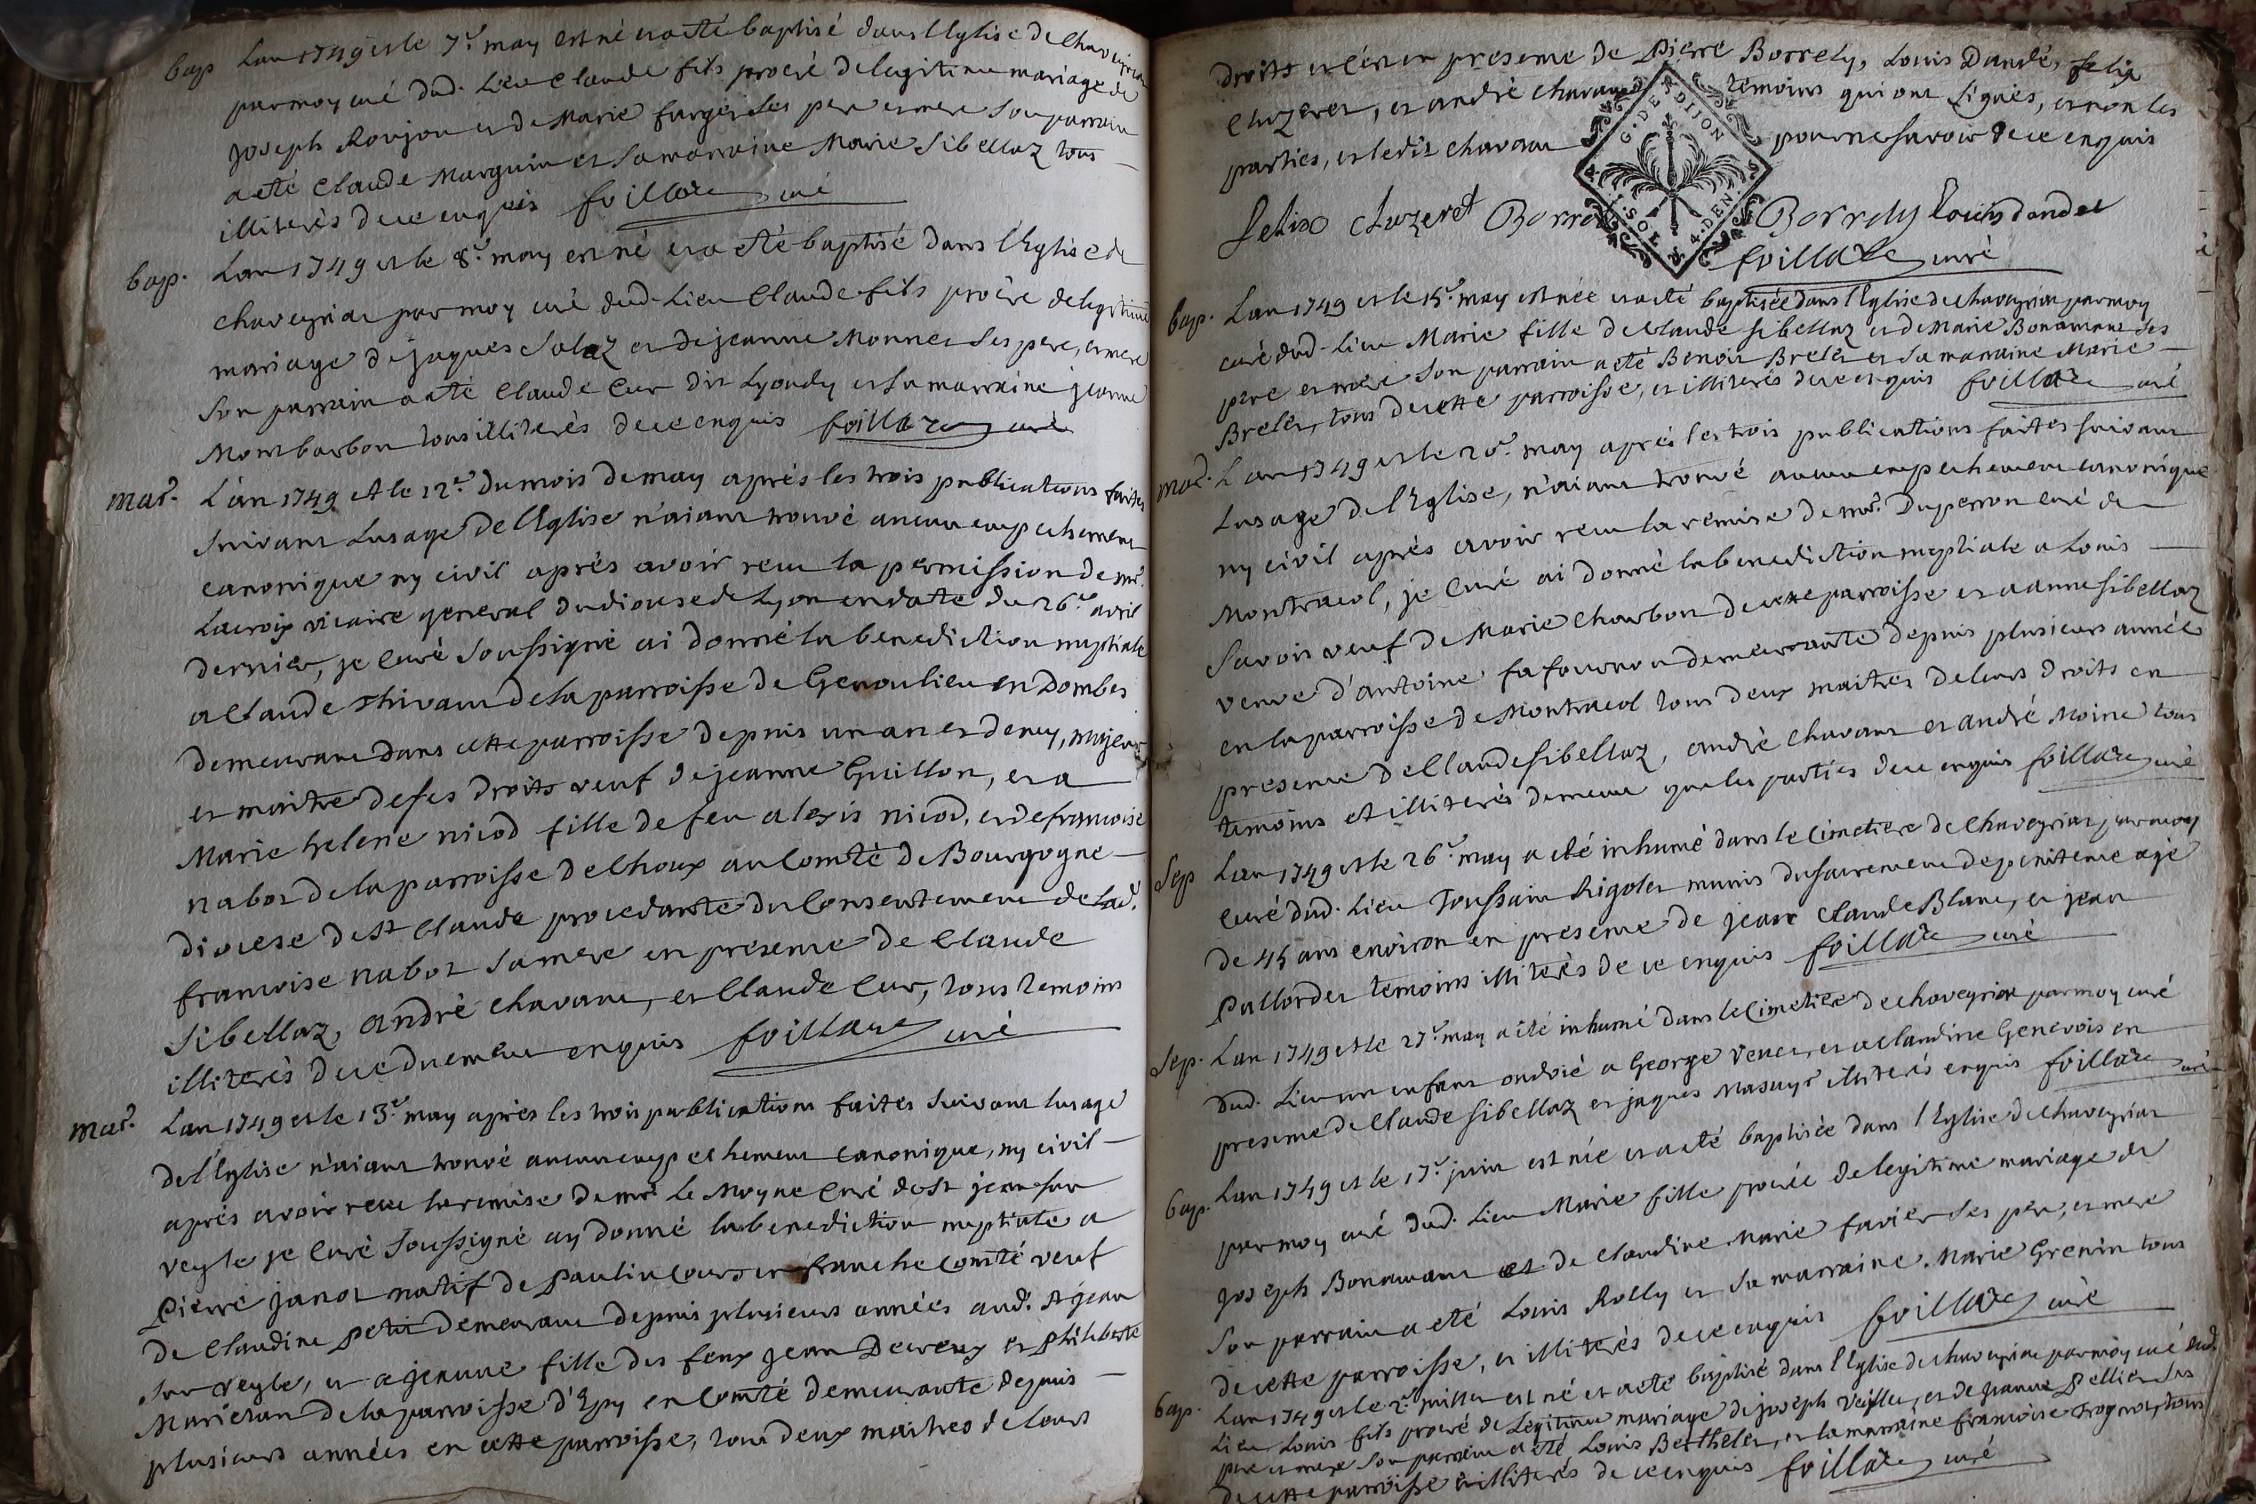 bap Lan 1749 et le 7e. may est né et a eté baptisé dans l'Eglise de Chaveyriat
par moy curé dud. Lieu Claude fils procréé de legitime mariage de
joseph Roujon et de Marie furger ses pere et mere Son parrain
a eté Claude Marguin et Sa marraine Marie Sibellaz tous
illiterès de ce enquis foillare curé
bap. Lan 1749 et le 8e. may est né et a eté baptisé dans l'Eglise de
Chaveyriat par moy curé dud. Lieu Claude fils procréé de legitime
mariage de jaques Salaz et de jeanne Monnet ses pere, et mere
Son parrain a eté Claude Cur dit Lyondy et Sa marraine jeanne
Montbarbon tous illiterès de ce enquis foillare curé
mar. L'an 1749 et le 12e. du mois de may après les trois publications faites
Suivant Lusage de l'Eglise n'aiant trouvé aucun empechement
canonique ny civil après avoir recu la permission de mr.
Lacroix vicaire general du diocese de Lyon en date du 26e avril
dernier, je Curé Soussigné ai donné la benediction nuptiale
a Claude Thivant de la parroisse de Genoulieu en Dombes
demeurant dans cette parroisse depuis un an et demy, majeur
et maitre de ses droits veuf de jeanne Guillon, et a
Marie helene nicod fille de feu alexis nicod, et de francoise
nabot de la parroisse de Choux au Comté de Bourgogne
diocese de St Claude procedante du Consentement de lad.
francoise nabot sa mere en presence de Claude
Sibellaz, andrè chavant, et Claude Cur, tous temoins
illiterès de ce duement enquis foillare curé
mar. Lan 1749 et le 13e. may après les trois publications faites Suivant lusage
de l'Eglise n'aiant trouvé aucun empechement canonique, ny civil
après avoir recu la remise de mr. Le Moyne Curé de St jean sur
veyle je Curé Soussigné ay donné la benediction nuptiale a
Pierre janot natif de Paulincourt en franche Comté veuf
de Claudine Petit demeurant depuis plusieurs années aud. St jean
sur veyle, et a jeanne fille des feux jean Decreux et Philiberte
Marietan de la parroisse d'Epy en Comté demeurante depuis
plusieurs années en cette parroisse, tous deux maitres de leurs
droits et ce en presence de Pierre Borrely, Louis Dandé, felix
Chuzeret, et andrè Chavant temoins qui ont signés, et non les
parties, et ledit Chavant pour ne savoir de ce enquis
G. DE DIJON
4. SOLS 4. DEN.
felix chuzeret Borrely Louis dandel
foillare curé
bap. Lan 1749 et le 15e. may est née et a eté baptisée dans l'Eglise de Chaveyriat par moy
curé dud. Lieu Marie fille de Claude Sibellaz et de Marie Bonamant ses
pere et mere Son parrain a eté Benoit Brelet et Sa marraine Marie
Brelet, tous de cette parroisse, et illiterés de ce enquis foillare curé
mar. L'an 1749 et le 20e. may après les trois publications faites suivant
Lusage de l'Eglise, n'aiant trouvé aucun empechement canonique
ny civil après avoir recu la remise de mr. Duperron curé de
Montracol, je Curé ai donné la benediction nuptiale a Louis
Savoir veuf de Marie Charbon de cette parroisse et a anne Sibellaz
veuve d'antoine fafournou demeurante depuis plusieurs années
en la parroisse de Montracol tous deux maitres de leurs droits en
presence de Claude Sibellaz, andrè chavant et andrè Moine tous
temoins et illiterès de meme que les parties de ce enquis foillare curé
Sep Lan 1749 et le 26e. may a eté inhumé dans le Cimetiere de Chaveyriat par moy
Curé dud. Lieu Toussain Rigolet munis du sacrement de penitence agé
de 45 ans environ en presence de jean Claude Blanc, et jean
Pallordet temoins illiterès de ce enquis foillare curé
Sep. Lan 1749 et le 27e. may a eté inhumé dans le Cimetiere de chaveyriat par moy curé
dud. Lieu un enfant ondoié a George Venet, et a Claudine Genevois en
presence de Claude Sibellaz et jaques Masuyr illiterés enquis foillare curé
bap. Lan 1749 et le 17e. juin est née et a eté baptisée dans l'Eglise de Chaveyriat
par moy curé dud. Lieu Marie fille procréé de legitime mariage de
joseph Bonamant et de Claudine Marie favier ses pere, et mere
Son parrain a eté Louis Rolly et Sa marraine Marie Grenin tous
de cette parroisse, et illiterès de ce enquis foillare curé
bap. Lan 1749 et le 2e. juillet est né et a eté baptisé dans l'Eglise de Chaveyriat par moy curé dud.
Lieu Louis fils procréé de Legitime mariage de joseph Veillet, et de jeanne Pellier ses
pere et mere Son parrain a eté Louis Berthelet, et la marraine francoise Frognot, tous
de cette parroisse et illiterés de ce enquis foillare curé